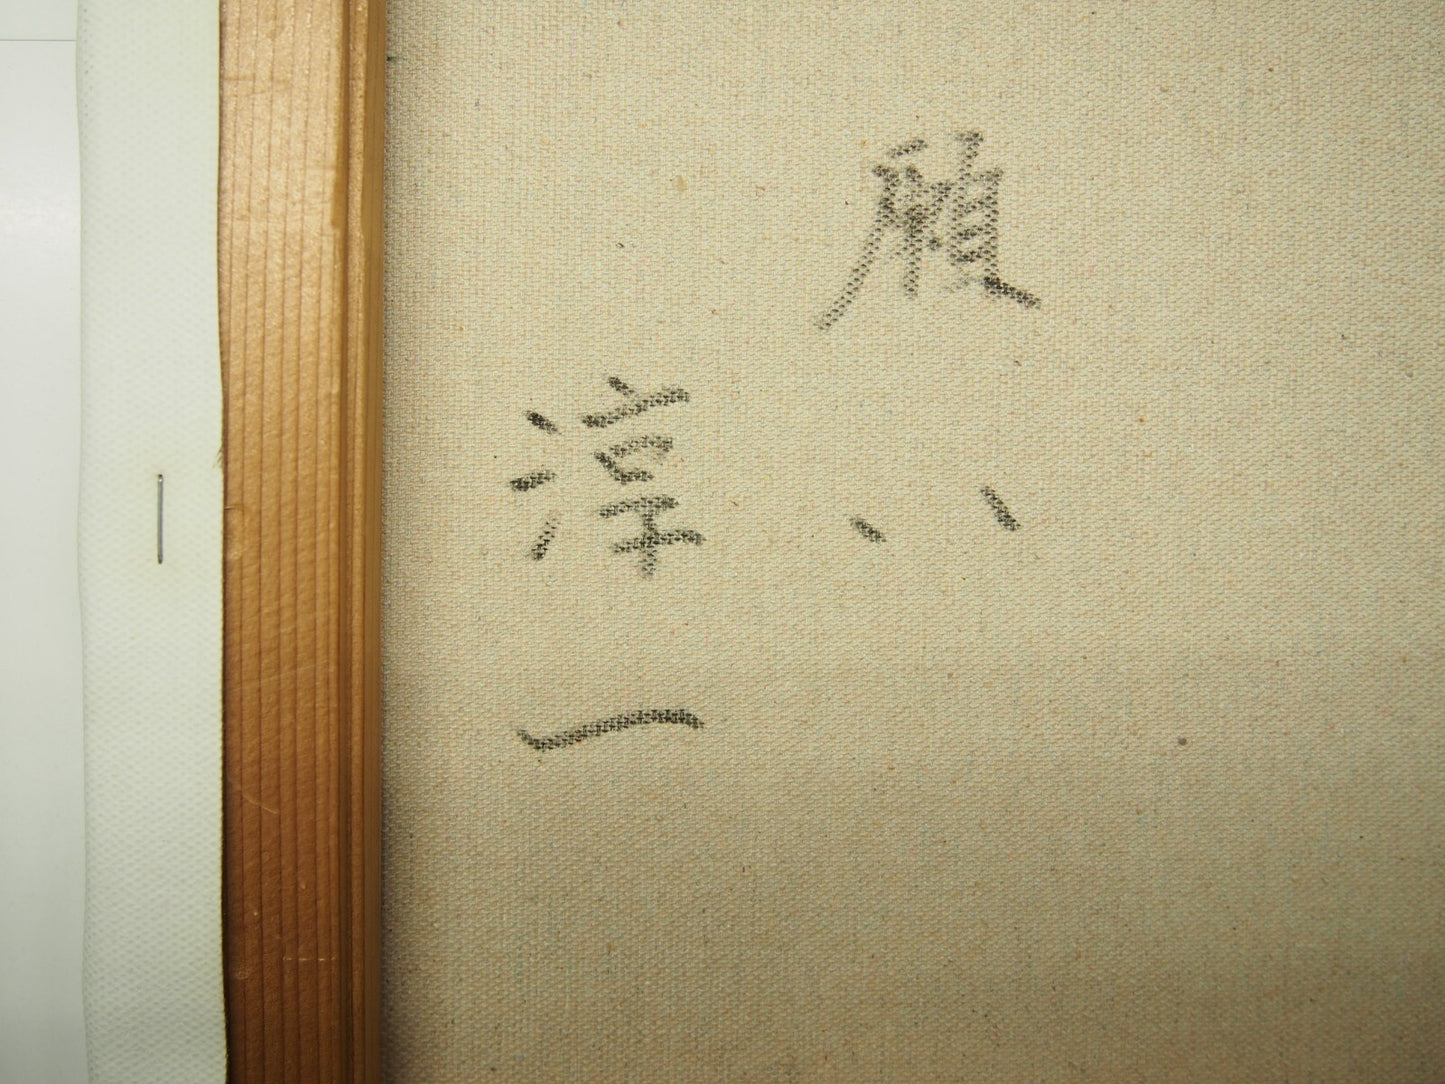 願い
淳一